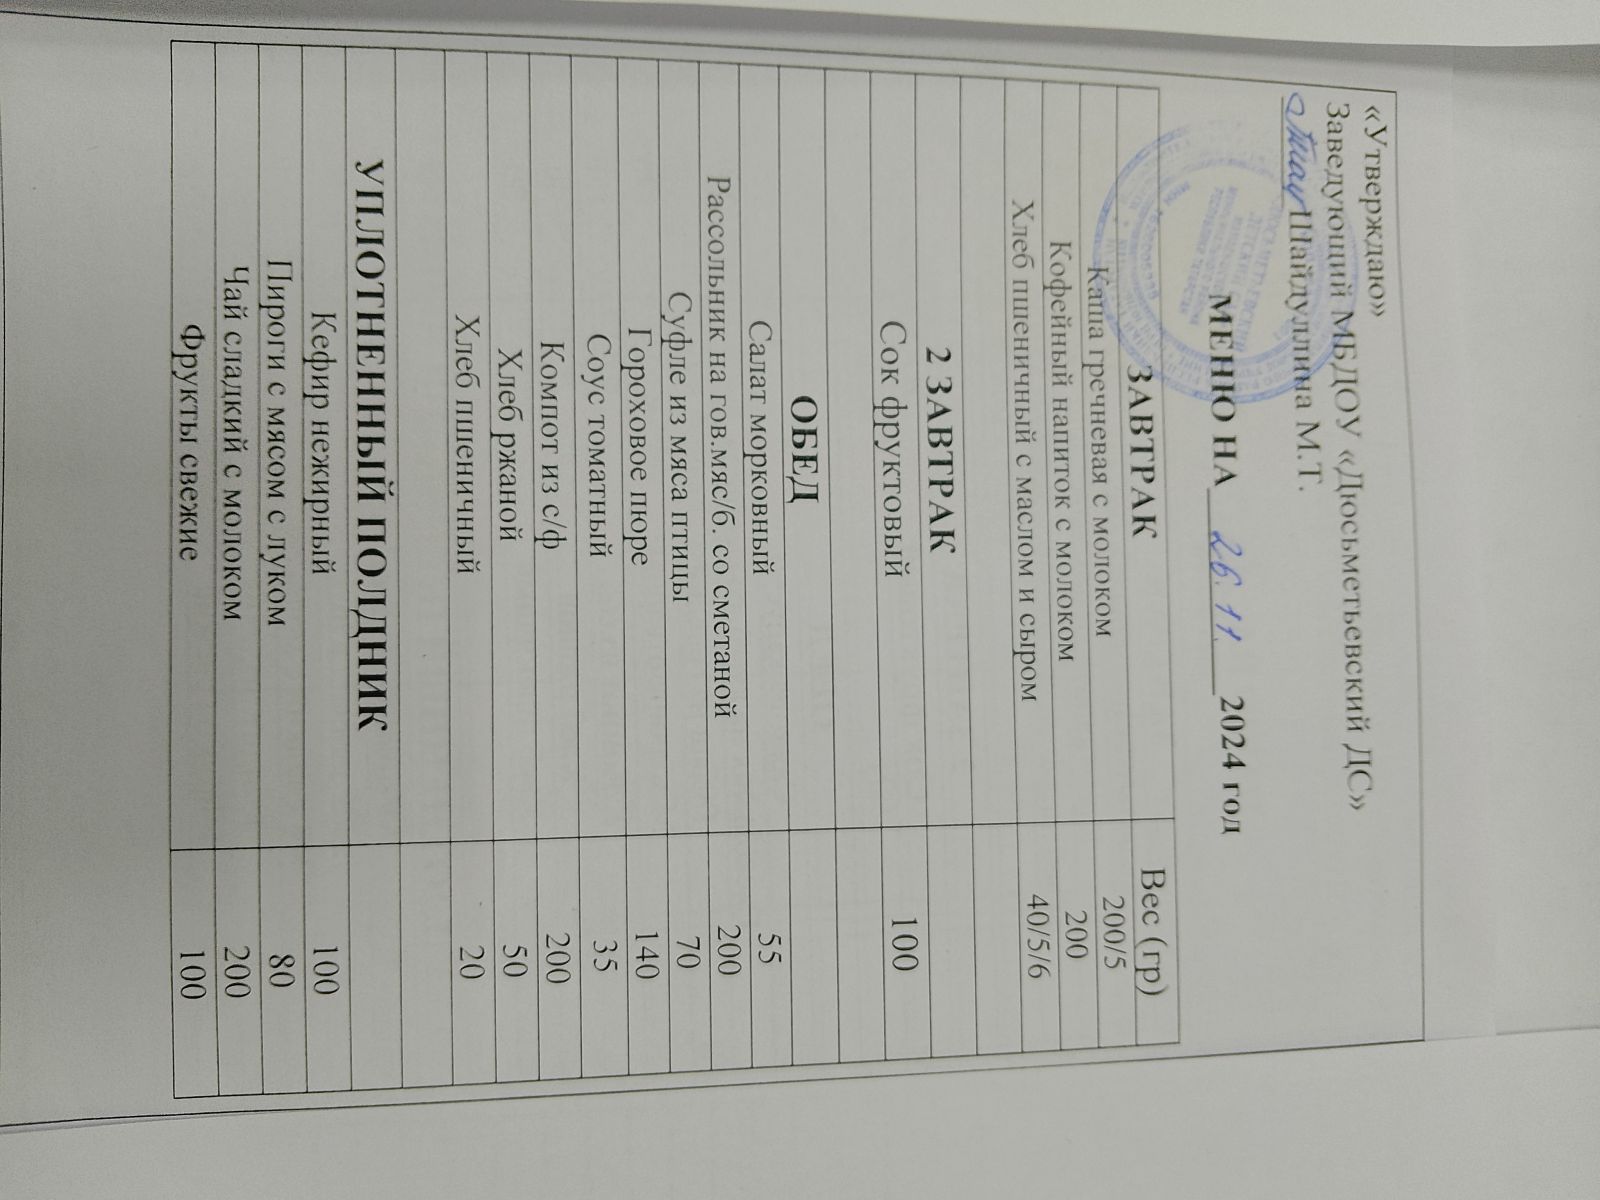 «Утверждаю»
Заведующий МБДОУ «Дюсьметьевский ДС»
Шайдуллина М.Т.
МЕНЮ НА 26.11 2024 год
ЗАВТРАК Вес (гр)
Каша гречневая с молоком 200/5
Кофейный напиток с молоком 200
Хлеб пшеничный с маслом и сыром 40/5/6
2 ЗАВТРАК
Сок фруктовый 100
ОБЕД
Салат морковный 55
Рассольник на гов.мяс/б. со сметаной 200
Суфле из мяса птицы 70
Гороховое пюре 140
Соус томатный 35
Компот из с/ф 200
Хлеб ржаной 50
Хлеб пшеничный 20
УПЛОТНЕННЫЙ ПОЛДНИК
Кефир нежирный 100
Пироги с мясом с луком 80
Чай сладкий с молоком 200
Фрукты свежие 100